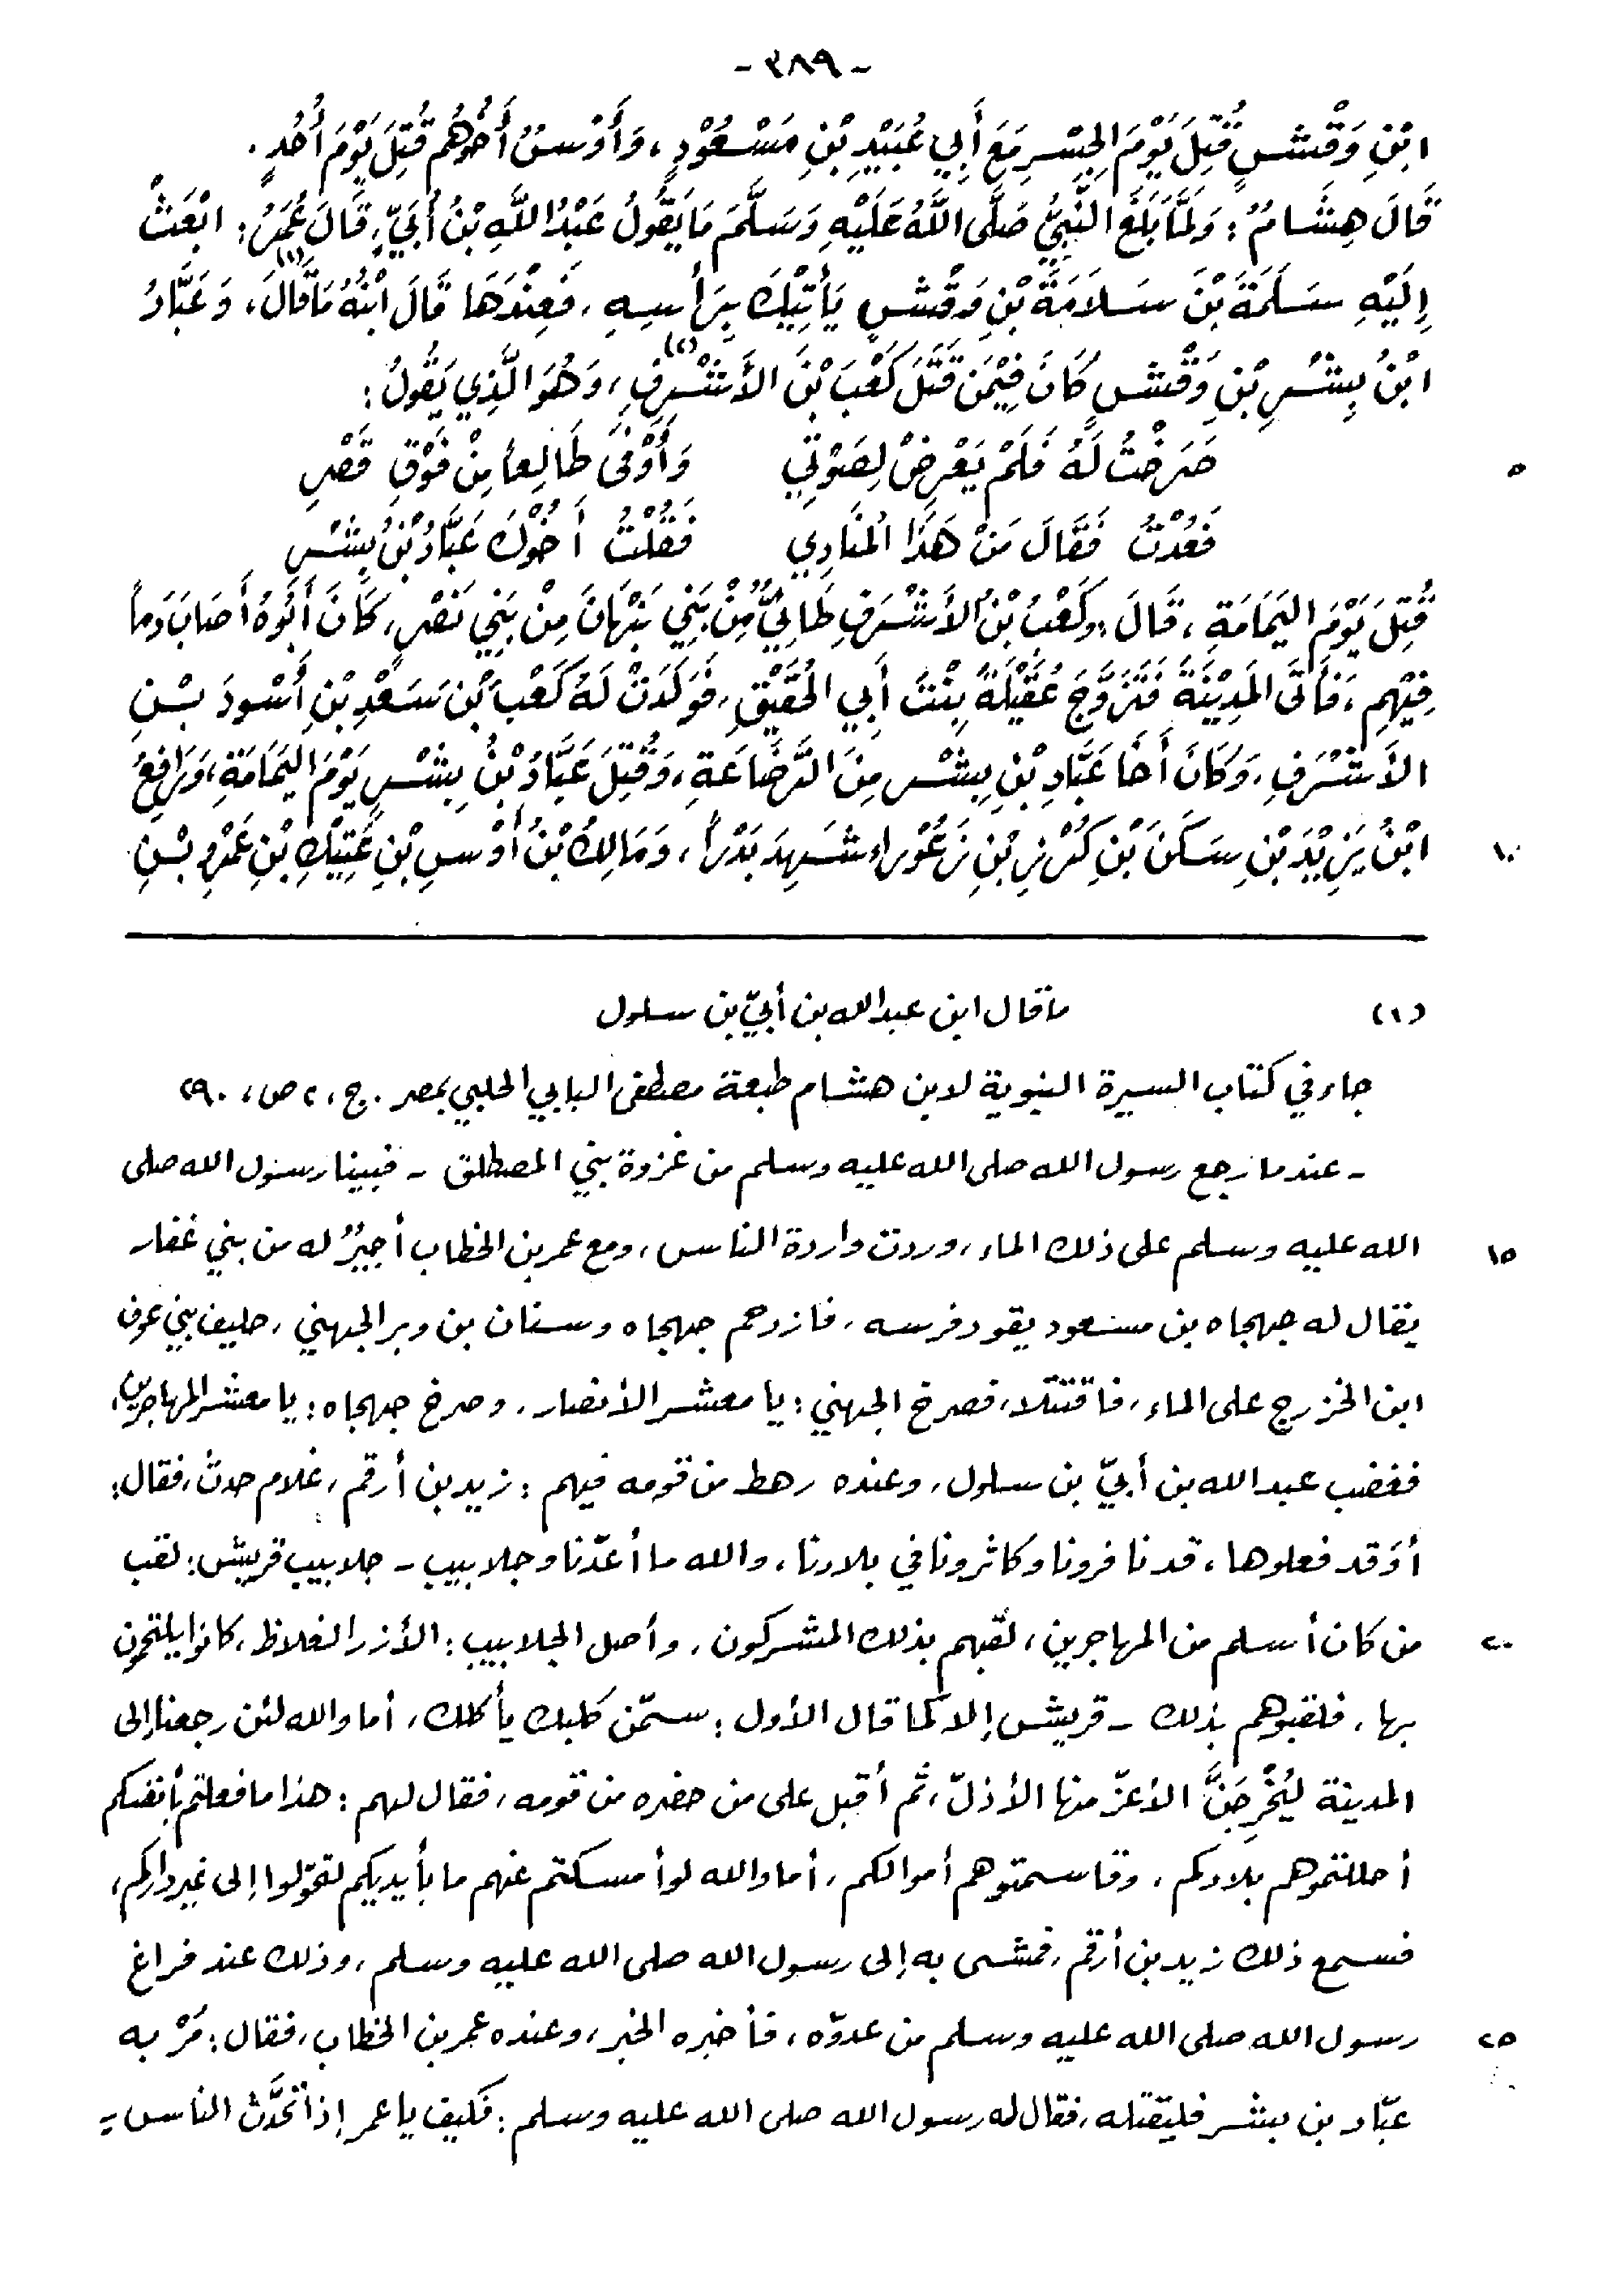 - ٣٨٩ -
ابْنِ وَقْشٍ قُتِلَ يَوْمَ الجِسْرِ مَعَ أَبِي عُبَيْدِ بْنِ مَسْعُوْدٍ، وَأَوْسُ أَخُوْهُم قُتِلَ يَوْمَ أُحُدٍ.
قَالَ هِشَامُ: وَلَمَّا بَلَغَ النَّبِيُّ صَلَّى اللَّهُ عَلَيْهِ وَسَلَّمَ مَا يَقُولُ عَبْدُ اللَّهِ بْنُ أُبَيّ، قَالَ عُمَرُ: ابْعَثْ
إِلَيْهِ سَلَمَةَ بْنَ سَلاَمَةَ بْنِ وَقْشٍ يَأْتِيْكَ بِرَأْسِهِ، فَعِنْدَهَا قَالَ ابْنُهُ مَا قَالَ(١)، وَعَبَّادُ
ابْنُ بِشْرِ بْنِ وَقْشٍ كَانَ فِيْمَن قَتَلَ كَعْبَ بْنَ الأَشْرَفِ(٢)، وَهُوَ الَّذِي يَقُولُ:
٥ صَرَخْتُ لَهُ فَلَمْ يَعْرِضْ لِصَوْتِي وَأَوْفَى طَالِعاً مِنْ فَوْقِ قَصْرِ
فَعُدْتُ فَقَالَ مَنْ هَذَا المُنَادِي فَقُلْتُ أَخُوْكَ عَبَّادُ بْنُ بِشْرِ
قُتِلَ يَوْمَ اليَمَامَةِ، قَالَ: وَكَعْبُ بْنُ الأَشْرَفِ طَائِيٌّ مِنْ بَنِي نَبْهَانَ مِنْ بَنِي نَصْرٍ، كَانَ أَبُوهُ أَصَابَ دَماً
فِيْهِم، فَأَتَى المَدِيْنَةَ فَتَزَوَّجَ عُقَيْلَةَ بِنْتَ أَبِي الحُقَيْقِ، فَوَلَدَتْ لَهُ كَعْبَ بْنَ سَعْدِ بْنِ أَسْوَدَ بْنِ
الأَشْرَفِ، وَكَانَ أَخَا عَبَّادِ بْنِ بِشْرٍ مِنَ الرَّضَاعَةِ، وَقُتِلَ عَبَّادُ بْنُ بِشْرٍ يَوْمَ اليَمَامَةِ، وَرَافِعُ
١٠ ابْنُ يَزِيْدَ بْنِ سَكَنَ بْنِ كُرْزِ بْنِ زَعُوْراء شَهِدَ بَدْراً، وَمَالِكُ بْنُ أَوْسِ بْنِ عَتِيْكِ بْنِ عَمْرِو بْنِ
(١) ما قال ابن عبدالله بن أبيّ بن سلول
جاء في كتاب السيرة النبوية لابن هشام طبعة مصطفى البابي الحلبي بمصر. ج، ٢ ص، ٢٩٠
- عندما رجع رسول الله صلى الله عليه وسلم من غزوة بني المصطلق - فبينا رسول الله صلى
١٥ الله عليه وسلم على ذلك الماء، وردت واردة الناس، ومع عمر بن الخطاب أجيرُ له من بني غفار
يقال له جهجاه بن مسعود يقود فرسه، فازدحم جهجاه وسنان بن وبر الجهني، حليف بني عوف
ابن الخزرج على الماء، فاقتتلا، فصرخ الجهني: يا معشر الأنصار، وصرخ جهجاه: يا معشر المهاجرين،
فغضب عبد الله بن أبيّ بن سلول، وعنده رهط من قومه فيهم: زيد بن أرقم، غلام حدث، فقال:
أوَقد فعلوها، قد نافرونا وكاثرونا في بلادنا، والله ما أعدّنا وجلابيب - جلابيب قريش: لقب
٢٠ من كان أسلم من المهاجرين، لقّبهم بذلك المشركون، وأصل الجلابيب: الأزر الغلاظ، كانوا يلتحفون
بها، فلقبوهم بذلك - قريش إلا كما قال الأول: سمّن كلبك يأكلك، أما والله لئن رجعنا إلى
المدينة ليُخْرِجَنَّ الأعزّ منها الأذلّ، ثم أقبل على من حضره من قومه، فقال لهم: هذا ما فعلتم بأنفسكم
أحللتموهم بلادكم، وقاسمتوهم أموالكم، أما والله لو أمسكتم عنهم ما بأيديكم لتحوّلوا إلى غير داركم،
فسمع ذلك زيد بن أرقم، فمشى به إلى رسول الله صلى الله عليه وسلم، وذلك عند فراغ
٢٥ رسول الله صلى الله عليه وسلم من عدوّه، فأخبره الخبر، وعنده عمر بن الخطاب، فقال: مُرْ به
عبّاد بن بشر فليقتله، فقال له رسول الله صلى الله عليه وسلم: فكيف يا عمر إذا تحدَّث الناس =